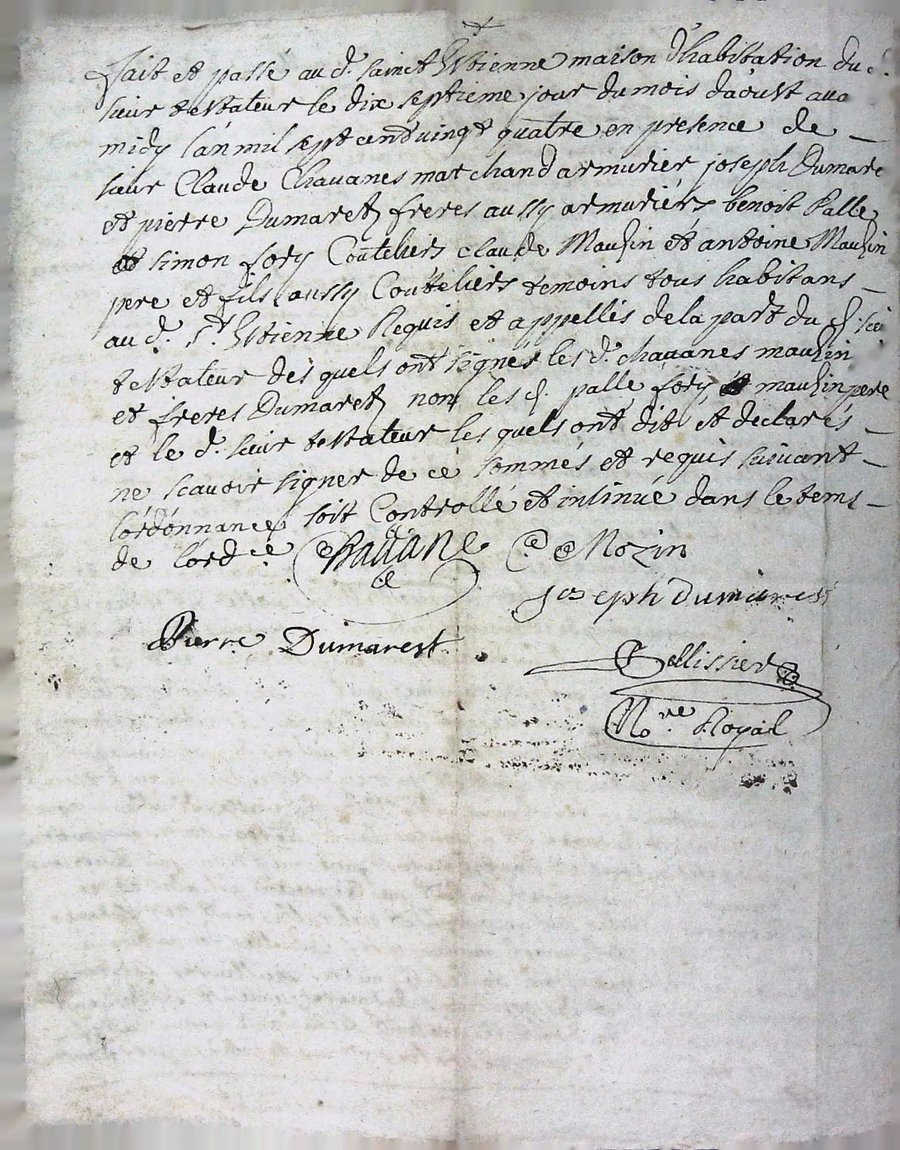 fait et passé aud. sainct Estienne maison d'habitation dud.
sieur testateur le dix septieme jour du mois d'aoust ava
midy l'an mil sept cent vingt quatre en presence de
sieur Claude Chavanes marchand armurier joseph Dumare
et pierre Dumaretz freres aussy armuriérs benoit Palle
et simon fory Couteliers claude Mauzin et antoine Mauzin
pere et fils aussy Coutéliers temoins tous habitans
au d. St Estienne Requis et appellés de la part du d. sr
testateur des quels ont signés les d. chavanes mauzin
et freres Dumaretz non les d. palle fory et mauzin pere
et le d. sieur testateur les quels ont dit et declarés
ne scavoir signer de cé sommés et requis suivant
l'órdónnance soit Controllé et insinué dans le tems
de l'ordce Chavane Ce Mozin
joseph dumarest
Pierre Dumarest
Pellissier
Nore Royal